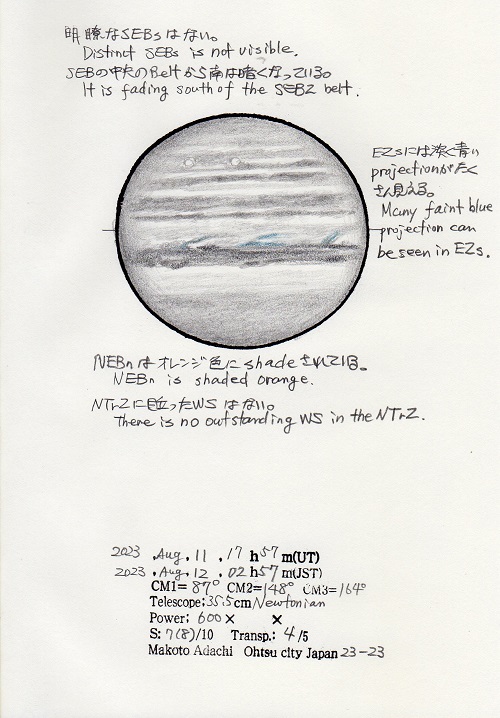 明瞭なSEBsはない。
Distinct SEBs is not visible.
SEBの中央のBeltから南は暗くなっている。
It is fading south of the SEBZ belt.
EZsには淡く青い
projectionがたく
さん見える。
Many faint blue
projection can
be seen in EZs.
NEBnはオレンジ色にshadeされている。
NEBn is shaded orange.
NTrZに目立ったWSはない。
There is no outstanding WS in the NTrZ.
2023 .Aug. 11 .17 h 57 m(UT)
2023 .Aug. 12 .02 h 57 m(JST)
CM1= 87° CM2= 148° CM3= 164°
Telescope: 35.5cm Newtonian
Power: 600× ×
S: 7(8)/10 Transp.: 4/5
Makoto Adachi Ohtsu city Japan 23-23